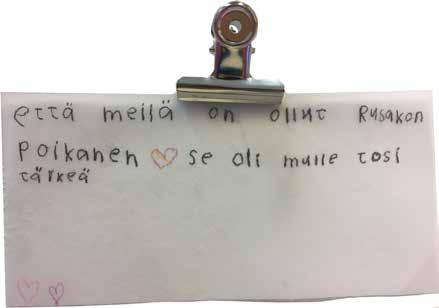 että meilä on ollut Rusakon
Poikanen ♡ se oli mulle tosi
tärkeä